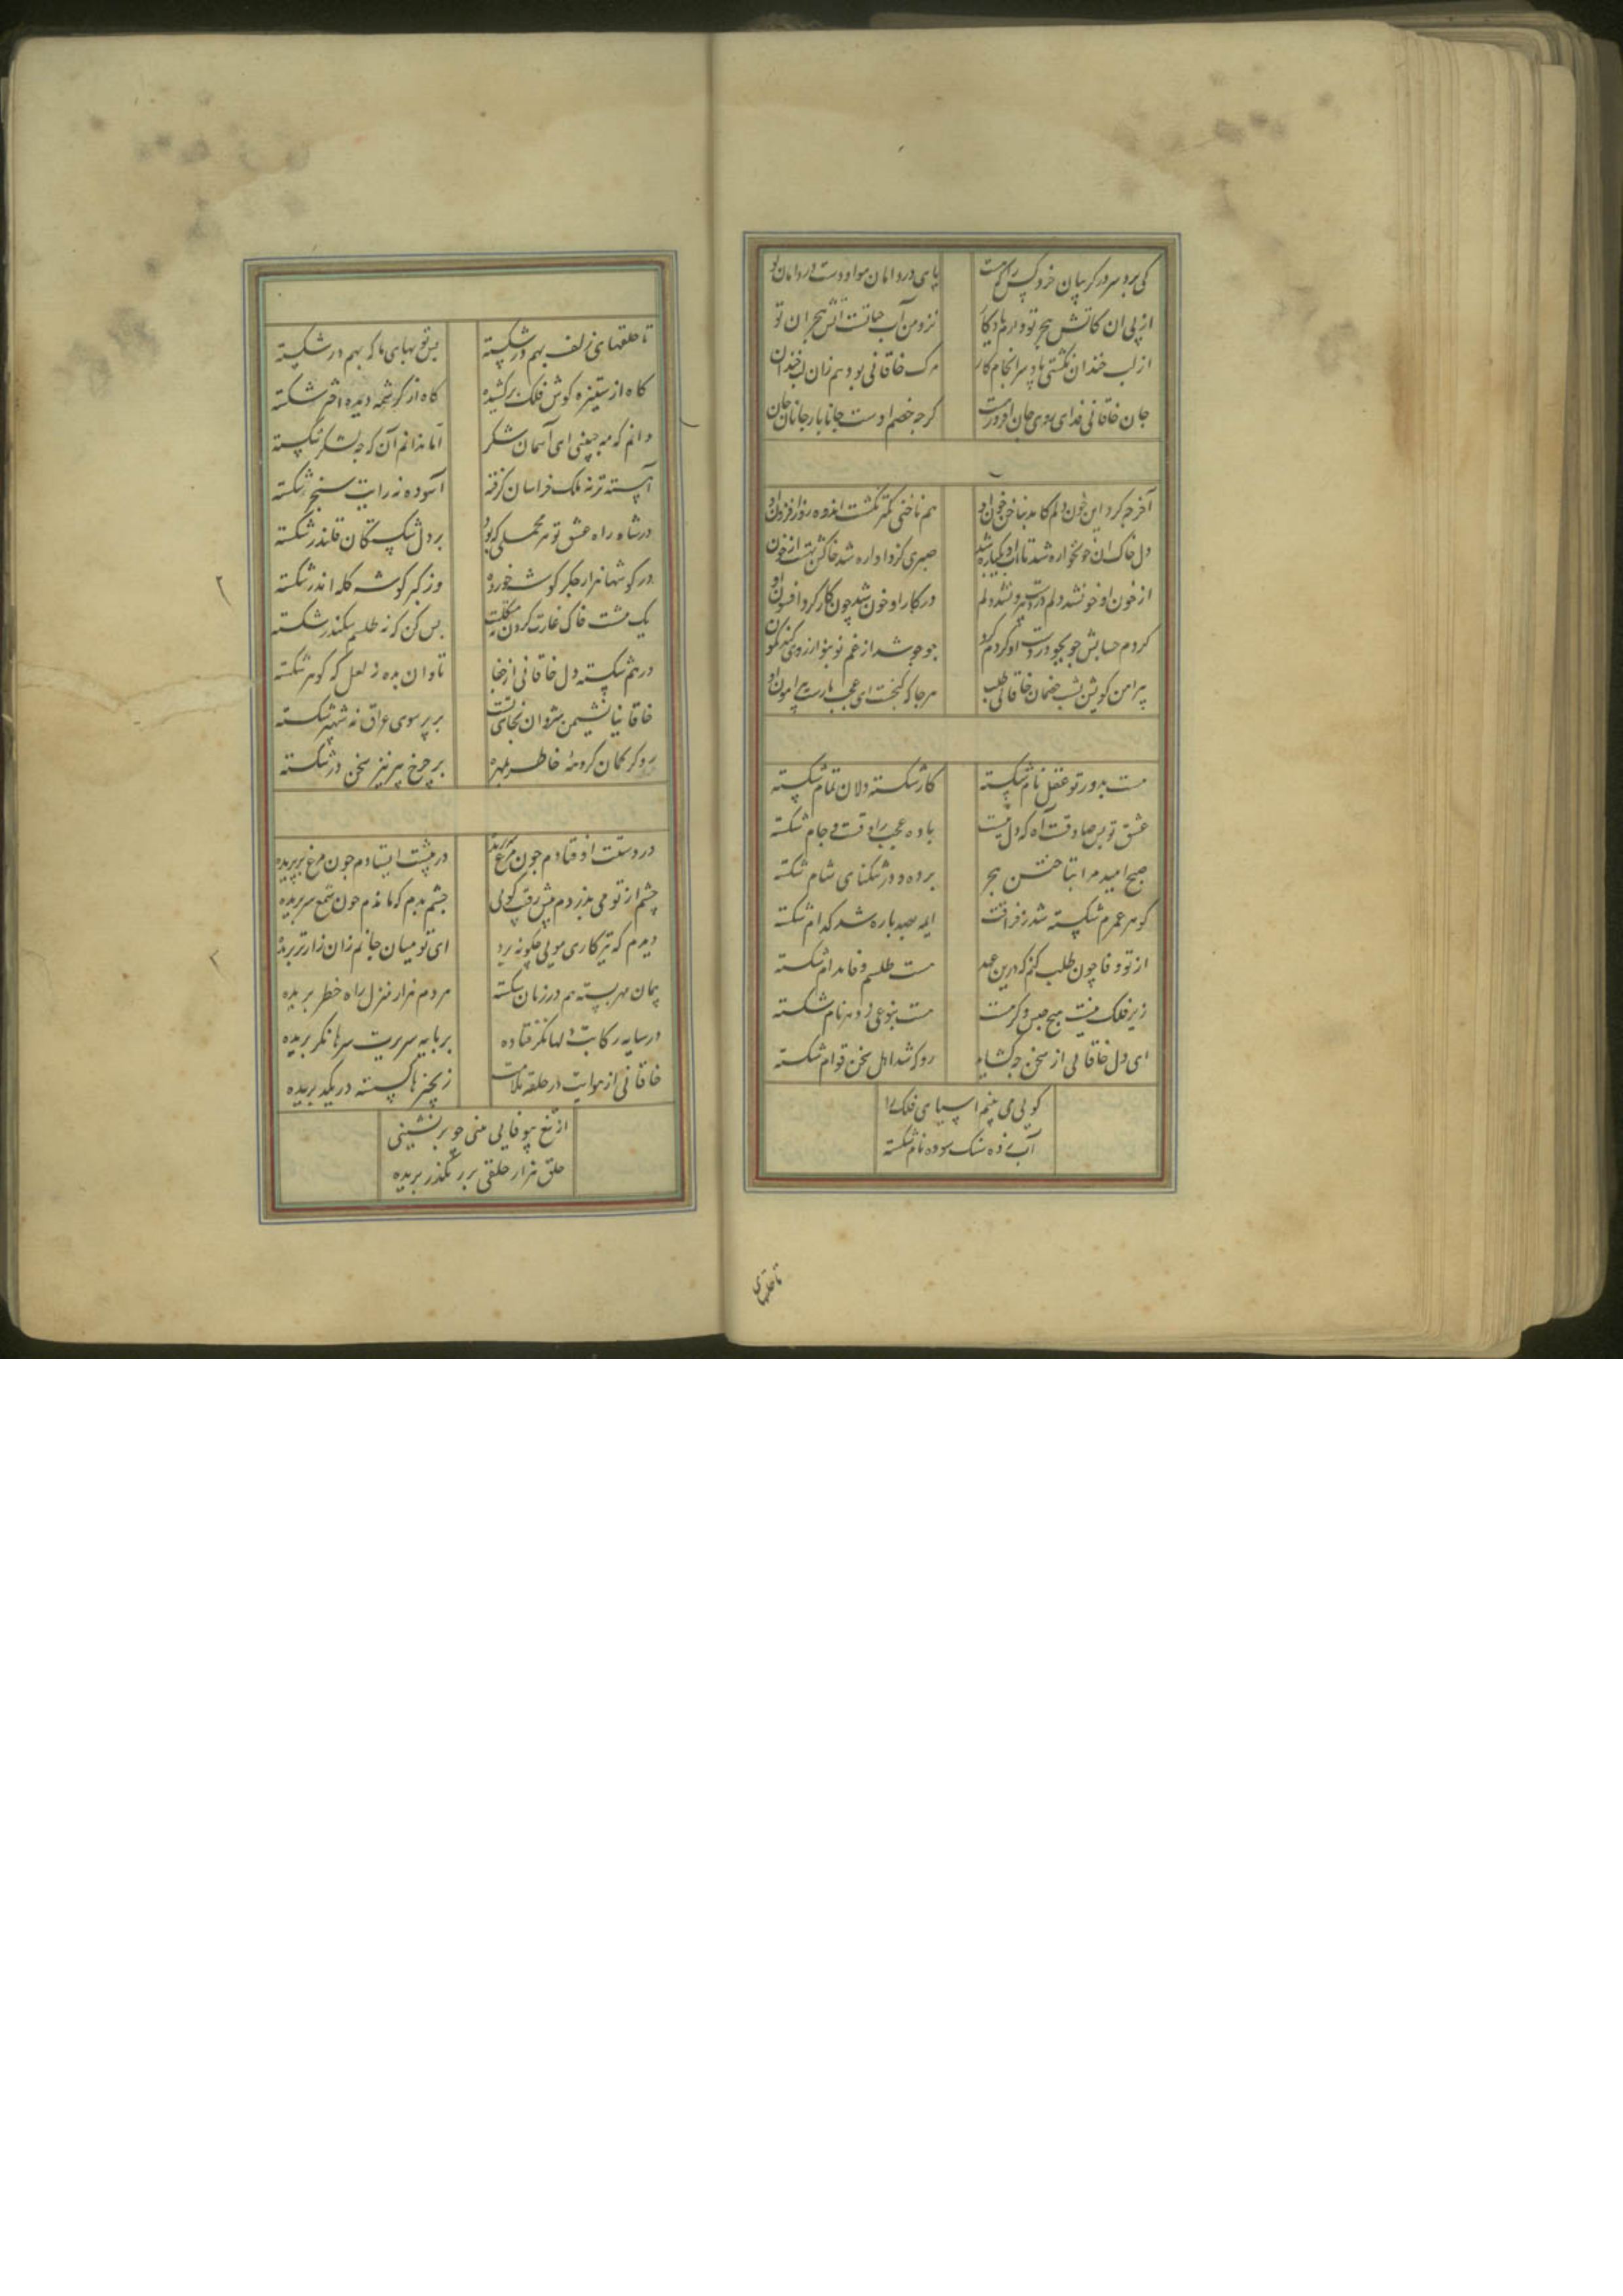 کی برد سر در کریبان خرد کس را که هست پای در دامان مواودست در دامان تو
از پی ان کاتش هجر تو دارم یادکار نزد من آب حیاتست آتش هجران تو
از لب خندان نکشتی یاد سرانجام کار مرک خاقانی بود هم زان لب خندان
جان خاقانی فدای روی جان افروز تست کر چه خصم اوست جانا یار جانان جان
آخر چه کرد این خون دلم کامد بناخن خون او هم ناخنی کمتر نکشت اندوه روز افزون او
دل خاک ان خونخواره شد تا اب او یکباره شد صبری کزو اواره شد خاکش بهست از خون
از خون او خو نشد دلم در دست هر دو نشد دلم در کار او خون شد چون کار کرد افسون او
کردم حسابش جو بجو در دست او کردم کرو جو جو شد از غم نو بنو از روی کندم کون
پیرامن کویش بشب خصمان خاقانی طلب هر جا که کنجست ای عجب مارست پیرامون او
هست بدور تو عقل نام شکسته کار شکسته دلان تمام شکسته
عشق تو بس صادقست آه که دل نیست باده عجب راوقست و جام شکسته
صبح امید مرا بتاختن هجر برده و در شکنای شام شکسته
کوهر عمرم شکسته شد ز فراقت ایمه بصد باره شد کدام شکسته
از تو وفا چون طلب کنم که درین عهد هست طلسم وفا مدام شکسته
زیر فلک نیست هیچ جنس و کر هست هست بنوعی ز دهر نام شکسته
ای دل خاقانی از سخن چه کشاید رو که شد اهل سخن قوام شکسته
کویی می بینم اسیای فلک را
آب زده سنک سوده نام شکسته
تا حلقهای
تا حلقهای زلف بهم در شکسته بس توبهای ما که بهم در شکسته
کاه از ستیزه کوش فلک برکشیده کاه از کرشمه دیده اختر شکسته
دانم که مه جبینی ای آسمان شکر اما ندانم آن که چه لشکر شکسته
آهسته تر نه ملک خراسان کرفته آسوده نه رایت سنجر شکسته
در شاه راه عشق تو هر محملی که بود بر دل شکستکان قلندر شکسته
در کوشها هزار جکر کوشه خورده وز کبر کوشه کله اندر شکسته
یک مشت خاک غارت کردن نه مملکت بس کن که نه طلسم سکندر شکسته
درهم شکسته دل خاقانی از جفا تاوان بده ز لعل که کوهر شکسته
خاقانیا نشیمن شروان نجای تست بر پر سوی عراق نه شهپر شکسته
رو کر کمان کروهه خاطر بمهره بر چرخ پیر تیز سخن در شکسته
در دستت اوفتادم چون مرغ پر بریده در پیشت ایستادم چون مرغ پریده
چشم از تو می بدزدم پیش رقیب کویی چشم بدم که ماندم چون شمع سربریده
دیدم که تیرکاری مویی چکونه برد ای تو میان جانم زان زارتر بریده
پیمان مهر بسته هم در زمان شکسته مردم هزار منزل راه خطر بریده
در سایه رکابت دلها نکر فتاده بر پایه سریرت سرها نکر بریده
خاقانی از هوایت در حلقه ملامت زنجیرها کسسته در یکد بریده
از تیغ بیوفایی منی چو برنشینی
حلق هزار حلقی بر ره کذر بریده